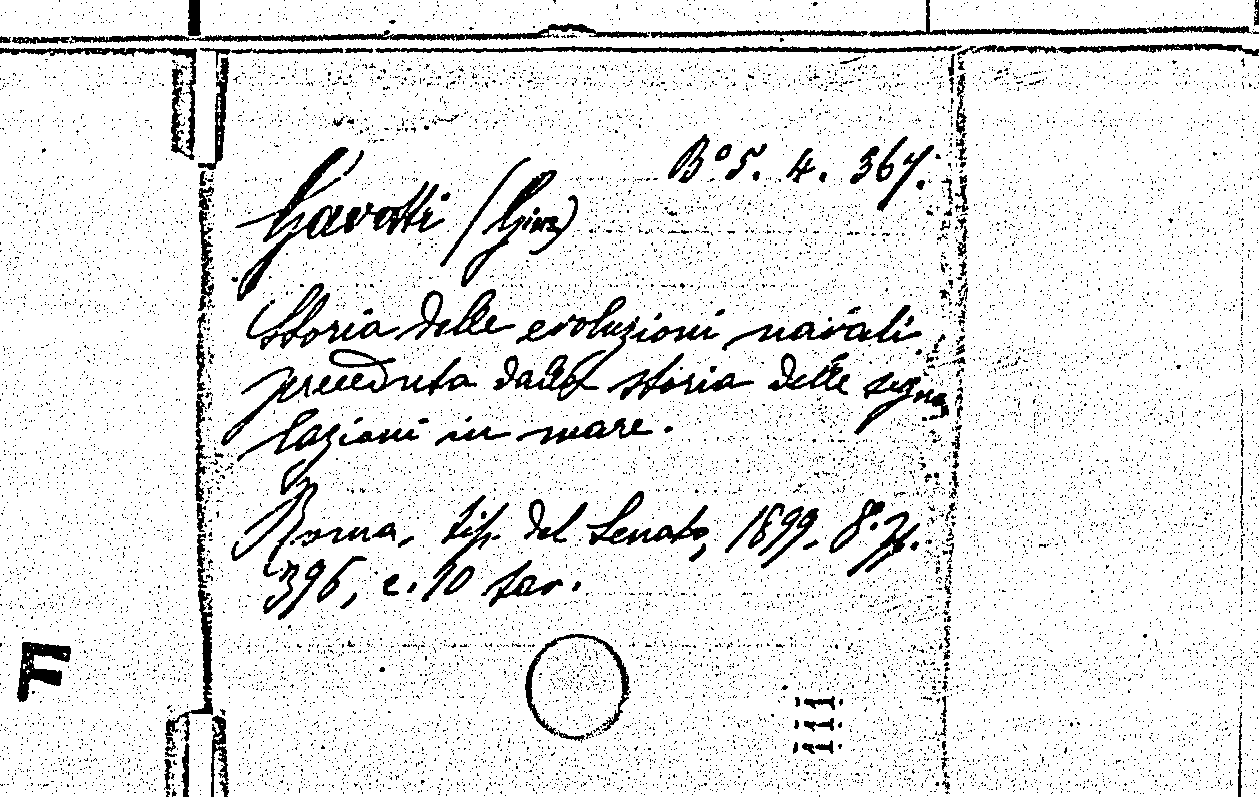 B° 5. 4. 367.
Gavotti (Gius)
Storia delle evoluzioni navali
preceduta dalla storia delle segna
lazioni in mare.
Roma, tip. del Senato, 1899. 8°. p.
396, c. 10 tav.
F